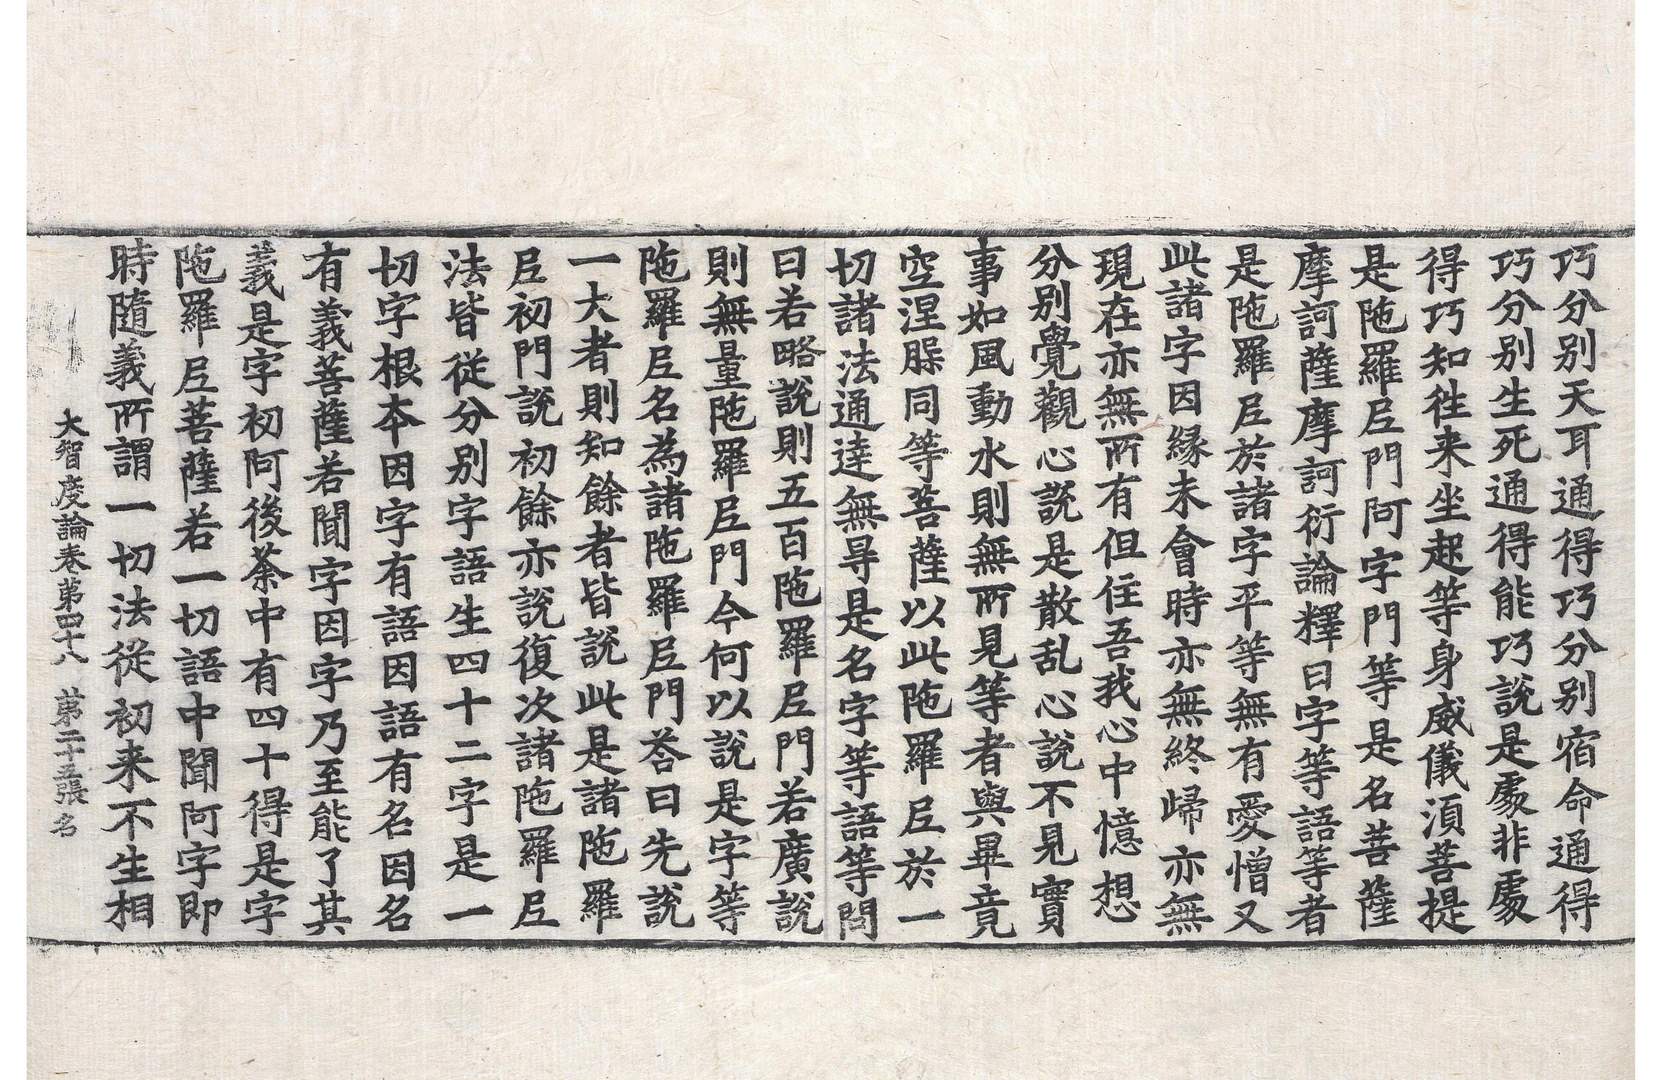 巧分别天耳通得巧分别宿命通得
巧分别生死通得能巧說是䖏非䖏
得巧知徃来坐起等身威儀湏菩提
是陁羅尼門阿字門等是名菩薩
摩訶薩摩訶衍論釋曰字等語等者
是陁羅尼於諸字平等無有愛憎又
此諸字因縁未會時亦無終歸亦無
現在亦無所有但住吾我心中憶想
分别覺觀心說是散乱心說不見實
事如風動水則無所見等者與畢竟
空涅槃同等菩薩以此陁羅尼於一
切諸法通達無㝵是名字等語等問
曰若略說則五百陁羅尼門若廣說
則無量陁羅尼門今何以說是字等
陁羅尼名為諸陁羅尼門荅曰先說
一大者則知餘者皆說此是諸陁羅
尼初門說初餘亦說復次諸陁羅尼
法皆從分别字語生四十二字是一
切字根本因字有語因語有名因名
有義菩薩若聞字因字乃至能了其
義是字初阿後荼中有四十得是字
陁羅尼菩薩若一切語中聞阿字即
時隨義所謂一切法從初来不生相
大智度論卷苐四十八 苐二十五張 名